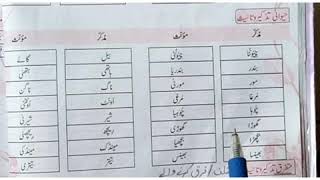 حیوانی تذکیر و تانیث
مذکر مؤنث مذکر مؤنث
چیونٹا چیونٹی بیل گائے
بندر بندریا ہاتھی ہتھنی
مور مورنی ناگ ناگن
مرغا مرغی اونٹ اونٹنی
چوہا چوہیا شیر شیرنی
گھوڑا گھوڑی ریچھ ریچھنی
بچھڑا بچھیا مینڈک مینڈکی
بھینسا بھینس تیتر تیتری
متفرق تذکیر و تانیث فرق کے والے